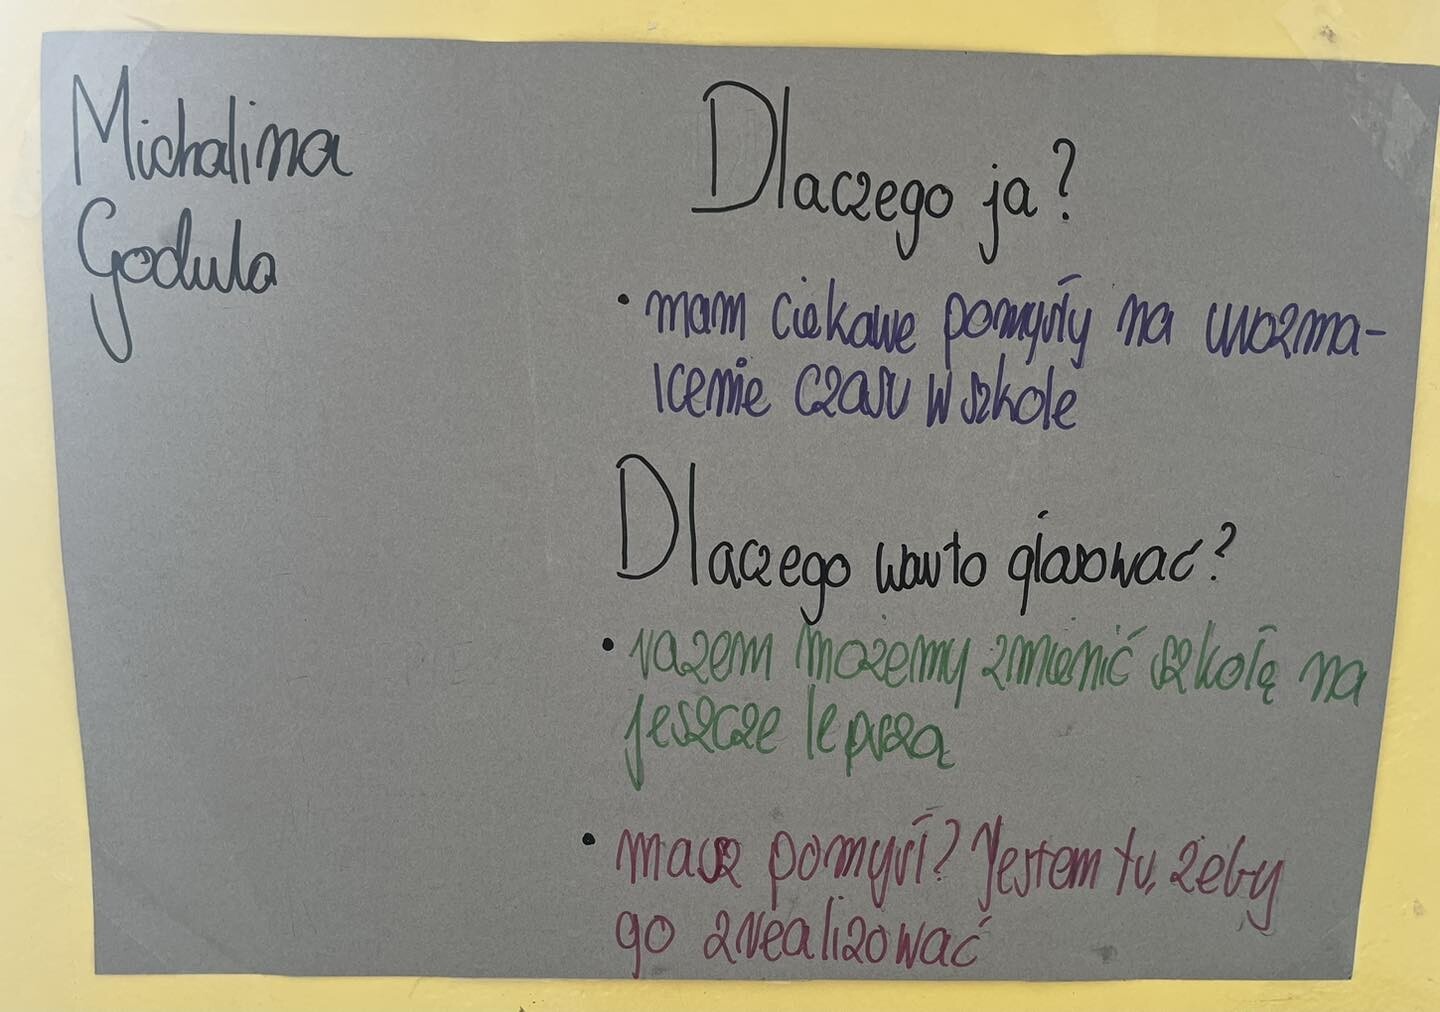 Michalina
Godula
Dlaczego ja?
• mam ciekawe pomysły na urozma-
icenie czasu w szkole
Dlaczego warto głosować?
• razem możemy zmienić szkołę na
jeszcze lepszą
• masz pomysł? Jestem tu, żeby
go zrealizować